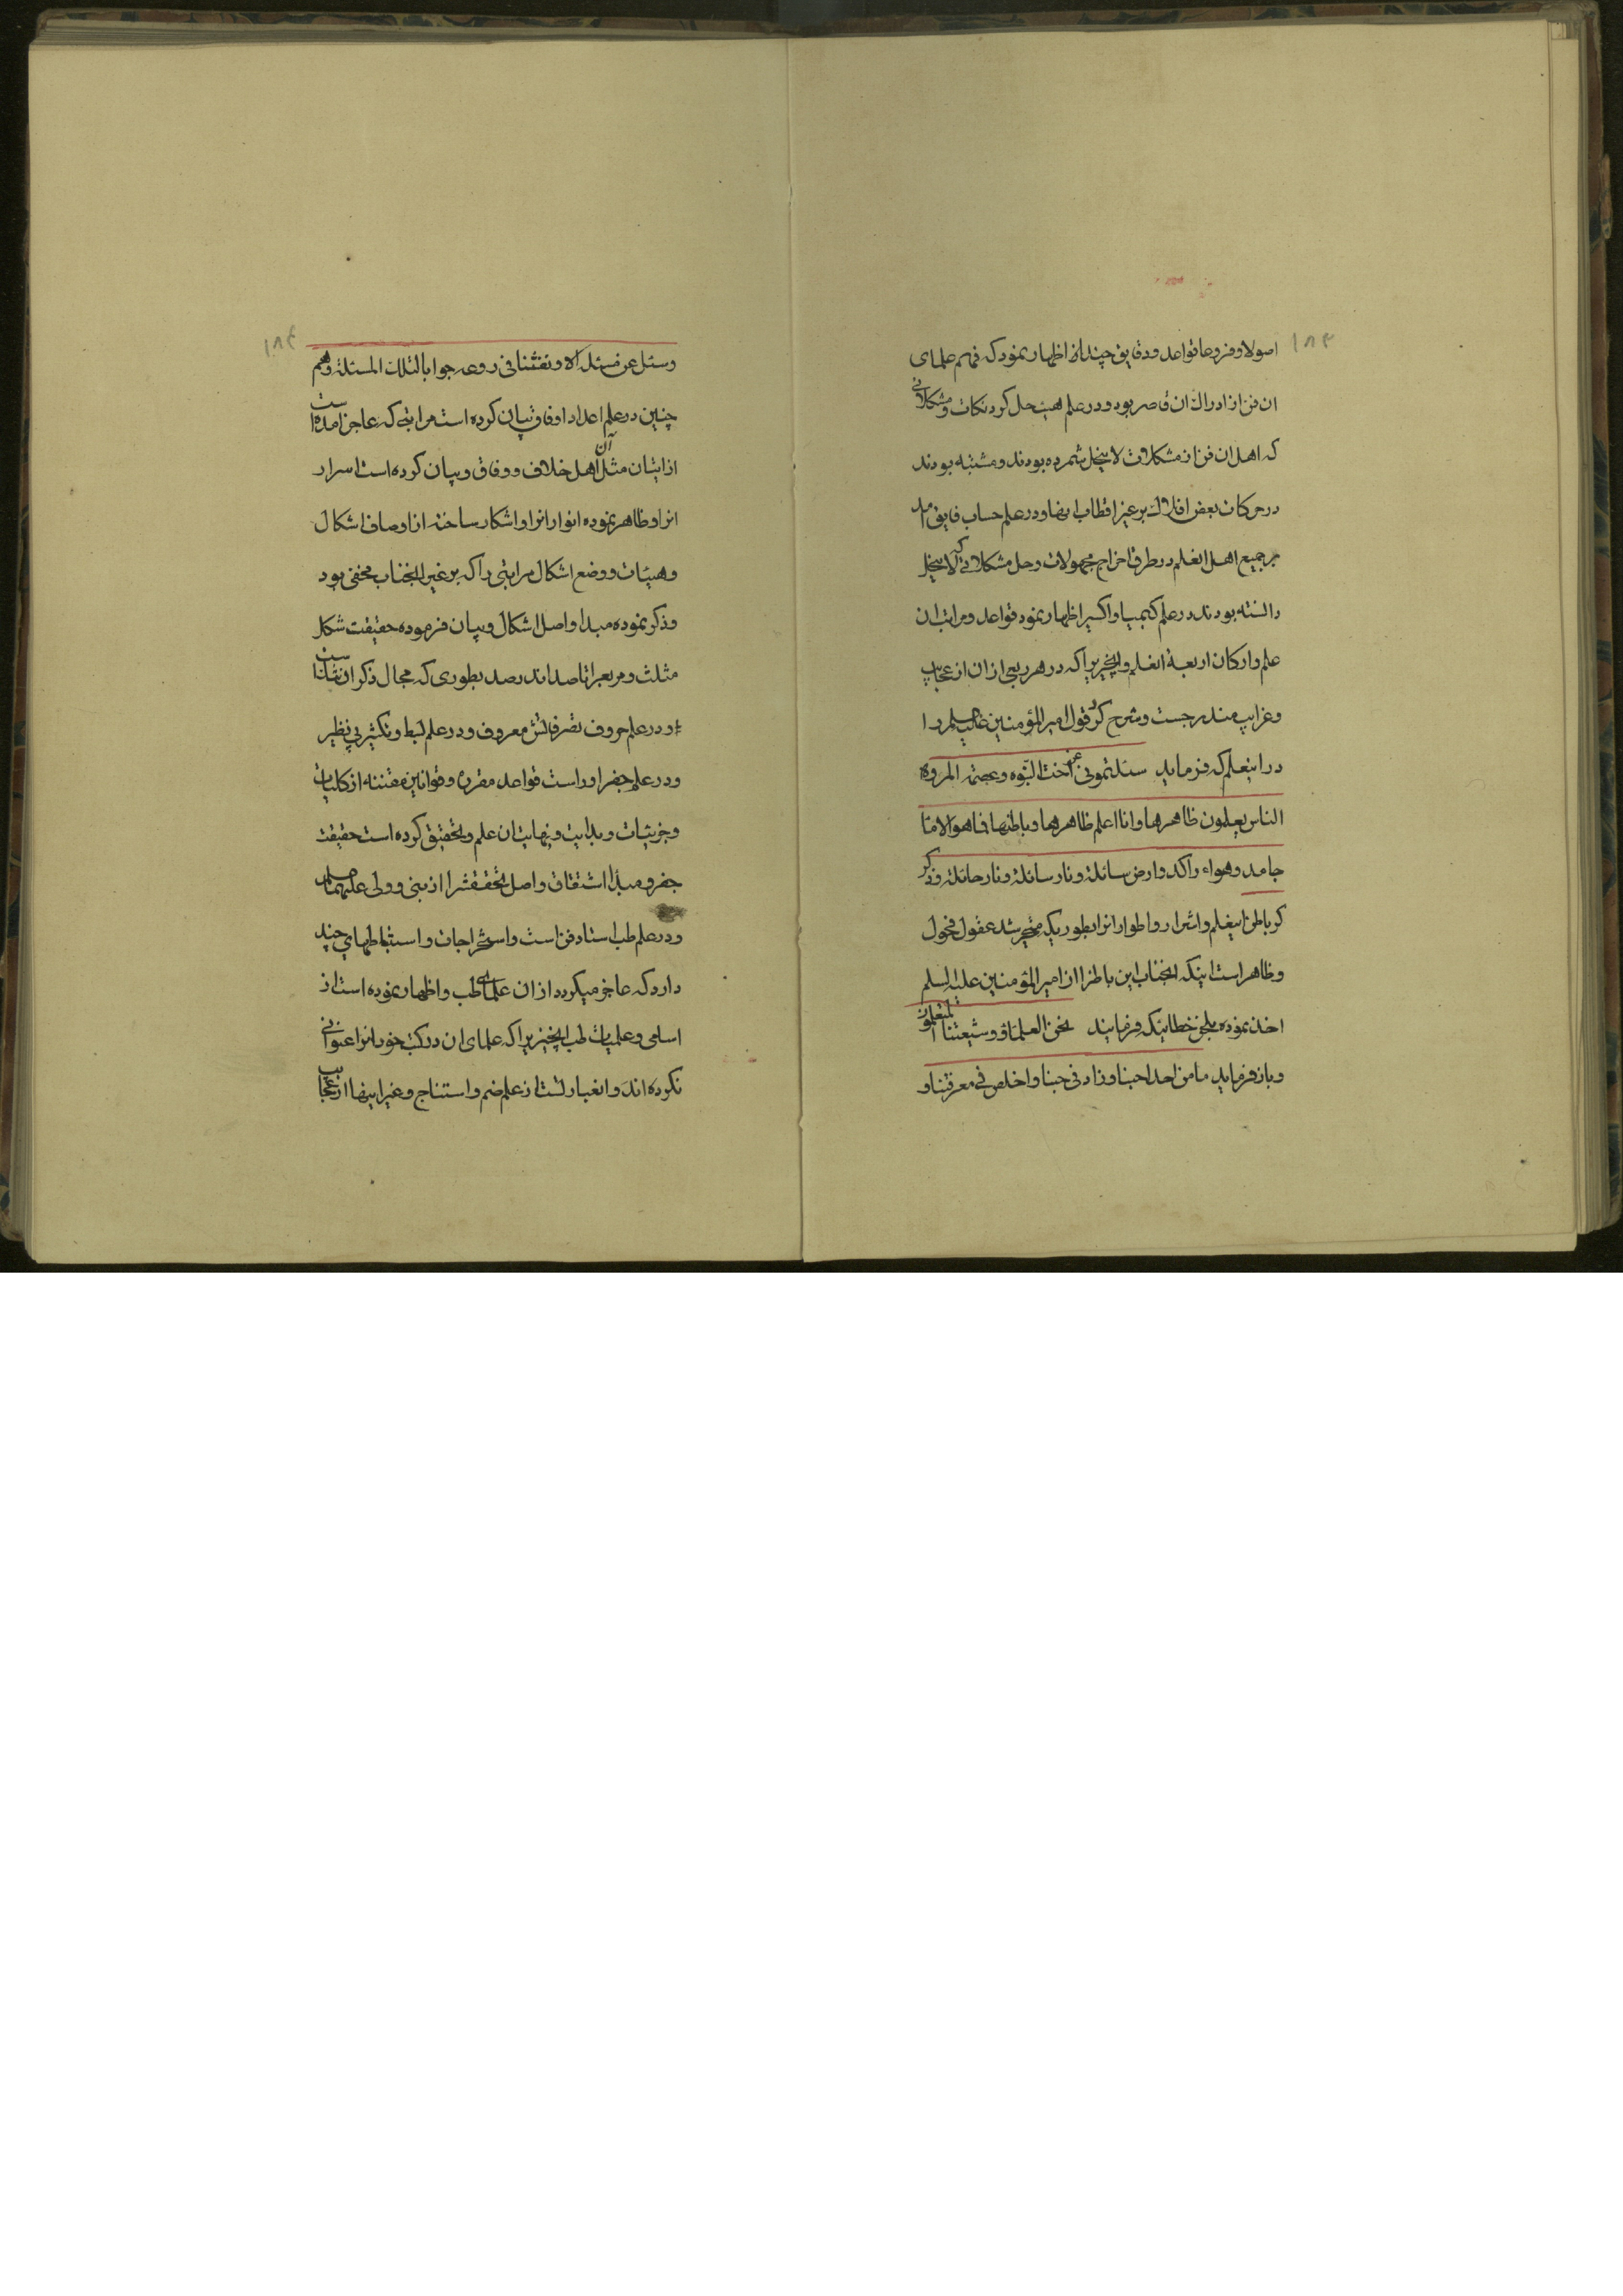 ۱۸۳
اصولا و فروعا قواعد و دقایق چند از آن اظهار نمود که فهم علمای
ان فن از ادراک ان قاصر بود و در علم هیئت حل کرد نکات و مشکلاتی
که اهل ان فن از مشکلات لاینحل شمرده بودند و مشتبه بودند
در حرکات بعض افلاک بر غیر اقطاب انها و در علم حساب فایق امد
بر جمیع اهل انعلم در طرق اخراج مجهولات و حل مشکلاتی که لاینحل
دانسته بودند در علم کیمیا و اکسیر اظهار نمود قواعد و مراتب ان
علم و ارکان اربعهٔ انعلم و انچیزیرا که در هر ربعی از ان از عجایب
و غرایب مندرجست و شرح کرد قول امیر المؤمنین علیه السلم را
در اینعلم که فرماید سئلتمونی عن اخت النبوه و عصمة المروه
الناس یعلمون ظاهرها و انا اعلم ظاهرها و باطنها ما هو الا ماء
جامد و هواء راکد و ارض سائلة و نار سائلة و نار حائلة و ذکر
کر باطن اینعلم و اسرار و اطوار انرا بطوریکه متحیر شد عقول فحول
و ظاهر است اینکه انجناب این باطن را از امیر المؤمنین علیه السلم
اخذ نموده بلحن خطابیکه فرمایند نحن العلماء و شیعتنا المتعلمون
و باز فرماید ما من احد احبنا و زاد فی حبنا و اخلص فی معرفتنا و
۱۸۴
و سئل عن مسئلة الا و نفثنا فی روعه جوابا لتلک المسئلة و هم
چنین در علم اعداد اوفاق بیان کرده است مراتبی که عاجز امده است
از اتیان مثل آن اهل خلاف و وفاق و بیان کرده است اسرار
انرا و ظاهر نموده انوار انرا و اشکار ساخته از اوصاف اشکال
و هیئات و وضع اشکال مراتبی را که بر غیر انجناب مخفی بود
و ذکر نموده مبدا و اصل اشکال و بیان فرموده حقیقت شکل
مثلث و مربع را تا صد اندر صد بطوری که مجال ذکر ان نشانا ست
و در علم حروف تصرفاتش معروف و در علم بسط و تکثیر بی نظیر
و در علم جفر اوراست قواعد مقرره و قوانین مقننه از کلیات
و جزئیات و بدایت و نهایت ان علم و تحقیق کرده است حقیقت
جفر و مبدا اشتقاق و اصل تحققش را از نبی و ولی علیهما السلم
و در علم طب استاد فن است و استخراجات و استنباطهای چند
دارد که عاجز میگردد از ان علمای طب و اظهار نموده است از
اسامی و علمیات طب انچیزیرا که علمای ان در کتب خود انرا عنوانی
نکرده اند و انغبارتست از علم ضم و استنتاج و غیر اینها از عجایب